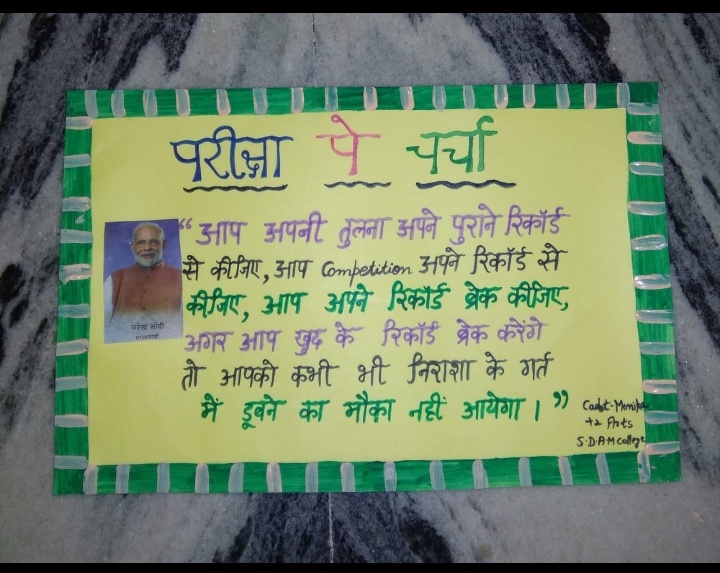 परीक्षा पे चर्चा
“आप अपनी तुलना अपने पुराने रिकॉर्ड
से कीजिए, आप Competition अपने रिकॉर्ड से
कीजिए, आप अपने रिकॉर्ड ब्रेक कीजिए,
अगर आप खुद के रिकॉर्ड ब्रेक करेंगे
तो आपको कभी भी निराशा के गर्त
में डूबने का मौका नहीं आयेगा ।”
नरेन्द्र मोदी
प्रधानमंत्री
Cadet-Monika
+2 Arts
S.D.A.M College